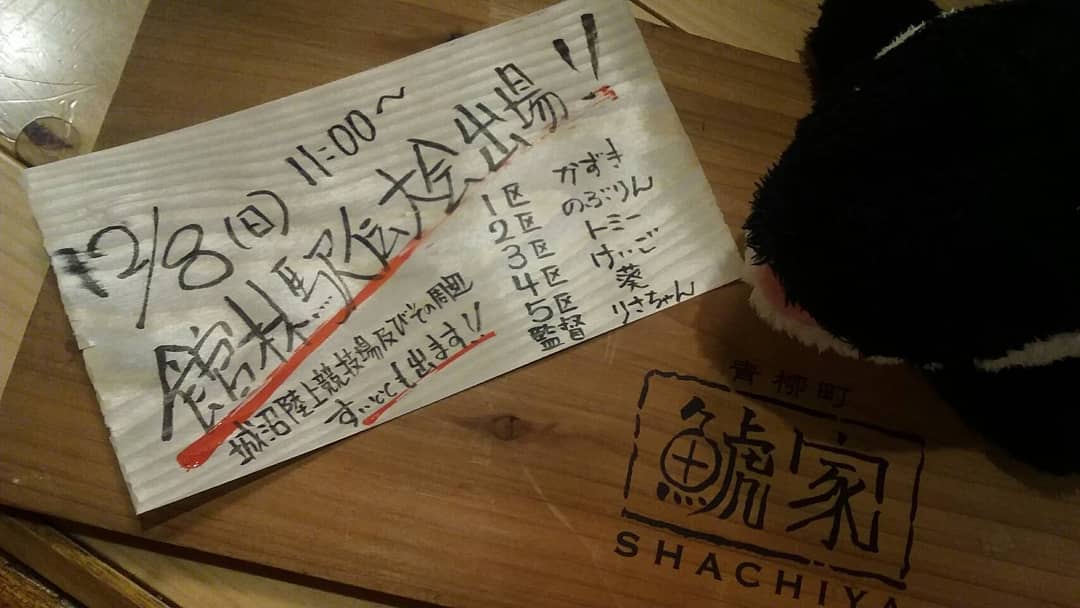 12/8(日) 11:00〜
館林駅伝大会出場!!
城沼陸上競技場及びその周辺
すいとども出ます!!
1区 かずき
2区 のぶりん
3区 トミー
4区 けいご
5区 葵
監督 りさちゃん
青柳町
鯱家
SHACHIYA